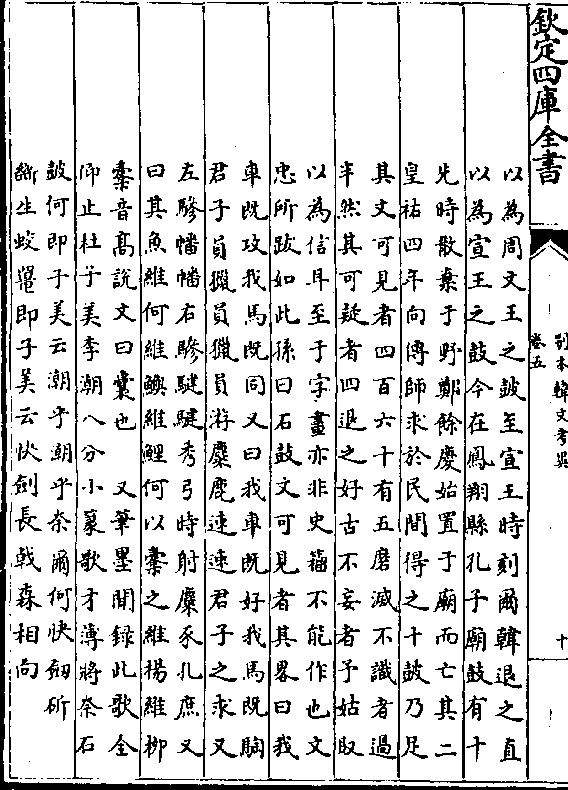 欽定四庫全書
别本韓文考異
卷五
十
以為周文王之鼓至宣王時刻爾韓退之直
以為宣王之鼓今在鳳翔縣孔子廟鼓有十
先時散棄于野鄭餘慶始置于廟而亡其二
皇祐四年向傳師求於民間得之十鼓乃足
其文可見者四百六十有五磨滅不識者過
半然其可疑者四退之好古不妄者予姑取
以為信耳至于字畫亦非史籕不能作也文
忠所跋如此孫曰石鼓文可見者其畧曰我
車既攻我馬既同又曰我車既好我馬既騊
君子員獵員獵員游麋鹿速速君子之求又
左驂幡幡右驂騝騝秀弓時射麋豕孔庶又
曰其魚維何維鱮維鯉何以櫜之維楊維柳
櫜音髙說文曰囊也　又筆墨閒録此歌全
仰止杜子美李潮八分小篆歌才薄將奈石
鼓何即子美云潮乎潮乎奈爾何快劒斫
斷生蛟鼉即子美云快劍長戟森相向